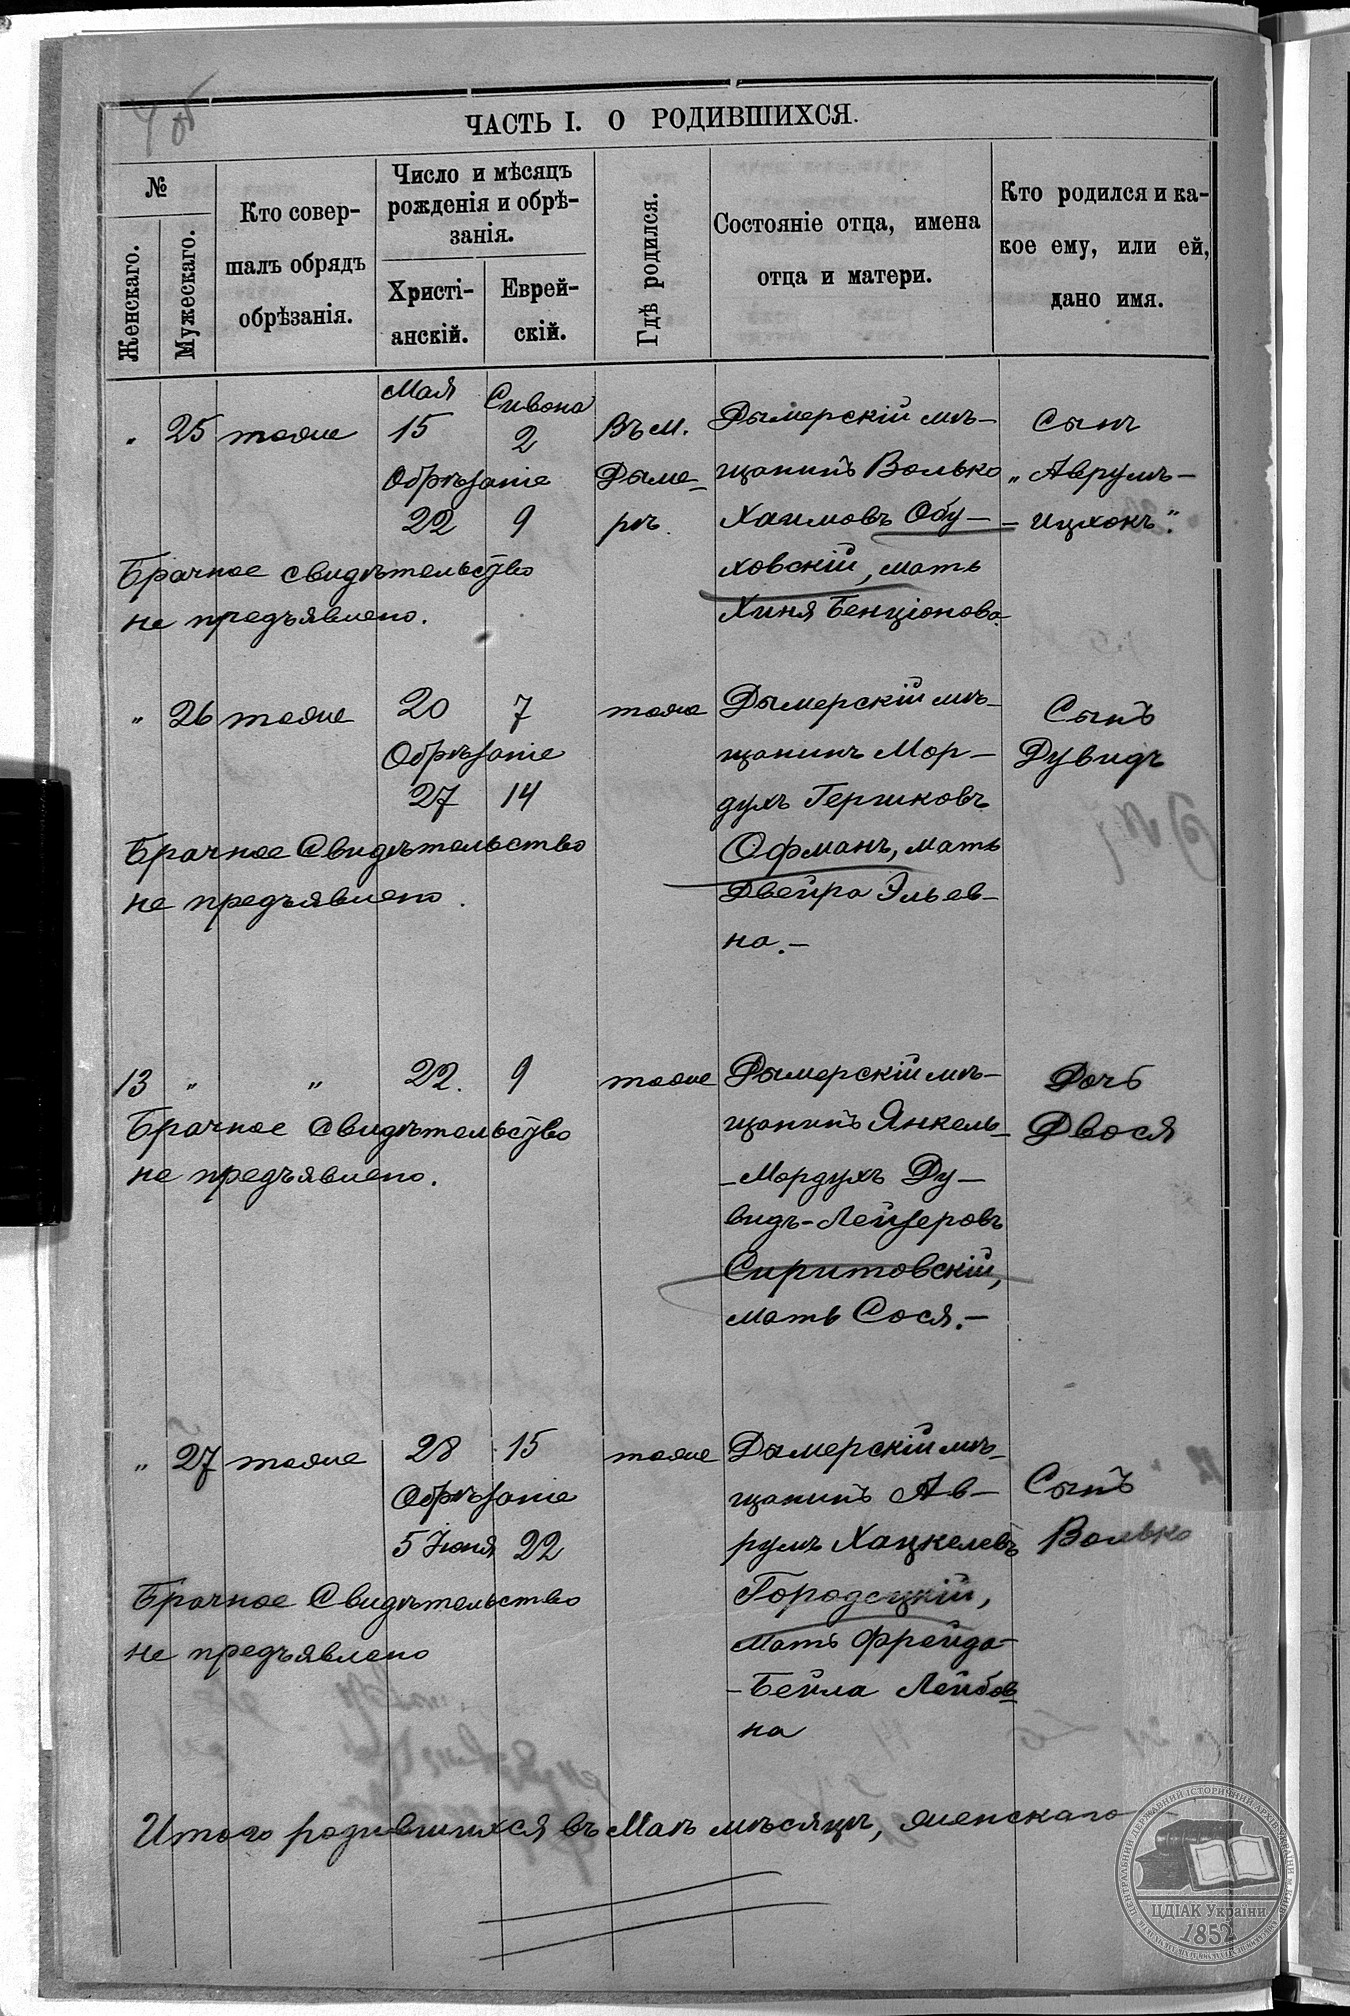 ЧАСТЬ I. О РОДИВШИХСЯ.
№
Женскаго.
Мужескаго.
Кто совер-
шалъ обрядъ
обрѣзанія.
Число и мѣсяцъ
рожденія и обрѣ-
занія.
Христі-
анскій.
Еврей-
скій.
Гдѣ родился.
Состояніе отца, имена
отца и матери.
Кто родился и ка-
кое ему, или ей,
дано имя.
" 25 тоже
Мая
15
Сивона
2
Обрѣзаніе
22 9
Въ м.
Дыме-
рѣ.
Дымерскій мѣ-
щанинъ Волько
Хаимовъ Обу-
ховскій, мать
Хиня Бенціонова.
Сынъ
„Аврумъ-
- Ицхокъ".
Брачное свидѣтельство
не предъявлено.
" 26 тоже
20 7
Обрѣзаніе
27 14
тоже
Дымерскій мѣ-
щанинъ Мор-
духъ Гершковъ
Офманъ, мать
Двейра Эльев-
на.-
Сынъ
Дувидъ
Брачное Свидѣтельство
не предъявлено.
13 " "
22. 9
тоже
Дымерскій мѣ-
щанинъ Янкель-
- Мордухъ Ду-
видъ-Лейзеровъ
Сиритовскій,
мать Сося.-
Дочь
Двося
Брачное Свидѣтельство
не предъявлено.
" 27 тоже
28 15
Обрѣзаніе
5 Іюня 22
тоже
Дымерскій мѣ-
щанинъ Ав-
румъ Хацкелевъ
Городецкій,
мать Фрейда-
- Бейла Лейбов-
на
Сынъ
Волько
Брачное Свидѣтельство
не предъявлено
Итого родившихся въ Маѣ мѣсяцѣ, женскаго
ЦЕНТРАЛЬНИЙ ДЕРЖАВНИЙ ІСТОРИЧНИЙ АРХІВ УКРАЇНИ м. КИЇВ
ЦДІАК України
1852